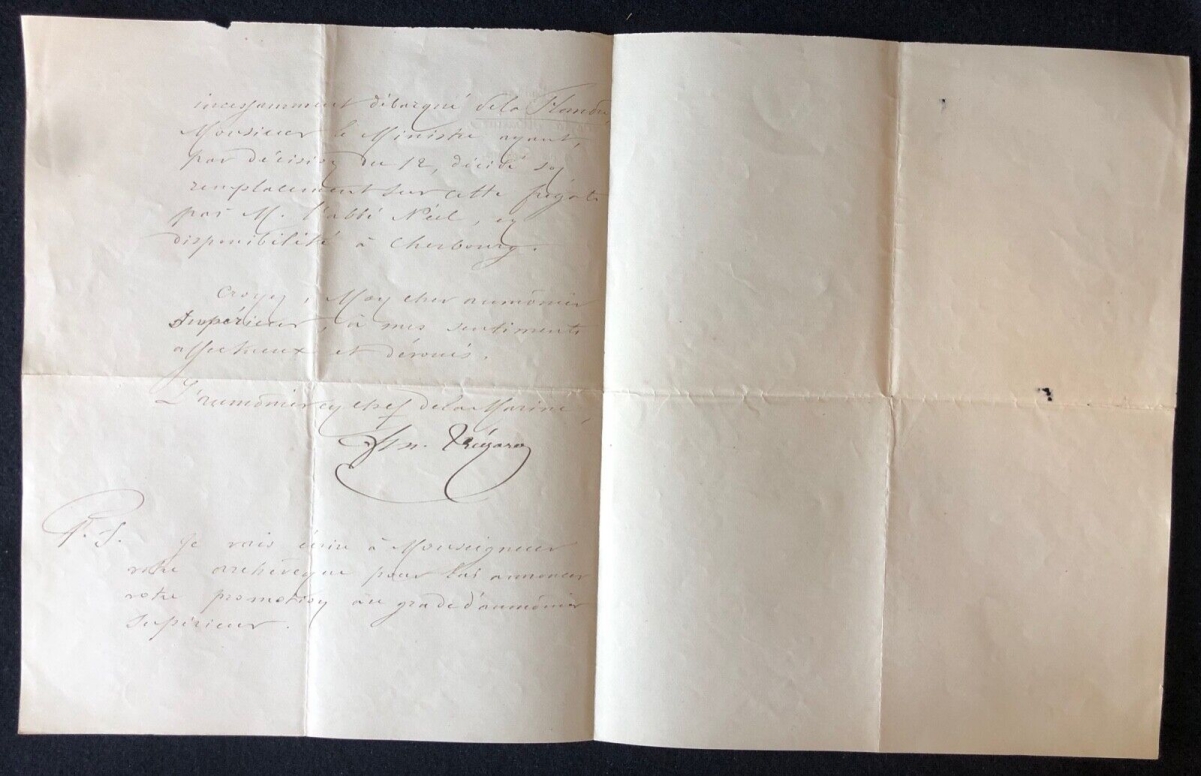 incessamment débarqué de la Flandre,
Monsieur le Ministre ayant,
par décision du 12, décidé son
remplacement sur cette frégate
par M. l'abbé Néel, en
disponibilité à Cherbourg.
Croyez, Mon cher aumônier
Supérieur, à mes sentiments
affectueux et dévoués.
L'aumônier en chef de la Marine,
P. S. Je vais écrire à Monseigneur
votre archevêque pour lui annoncer
votre promotion au grade d'aumônier
supérieur.